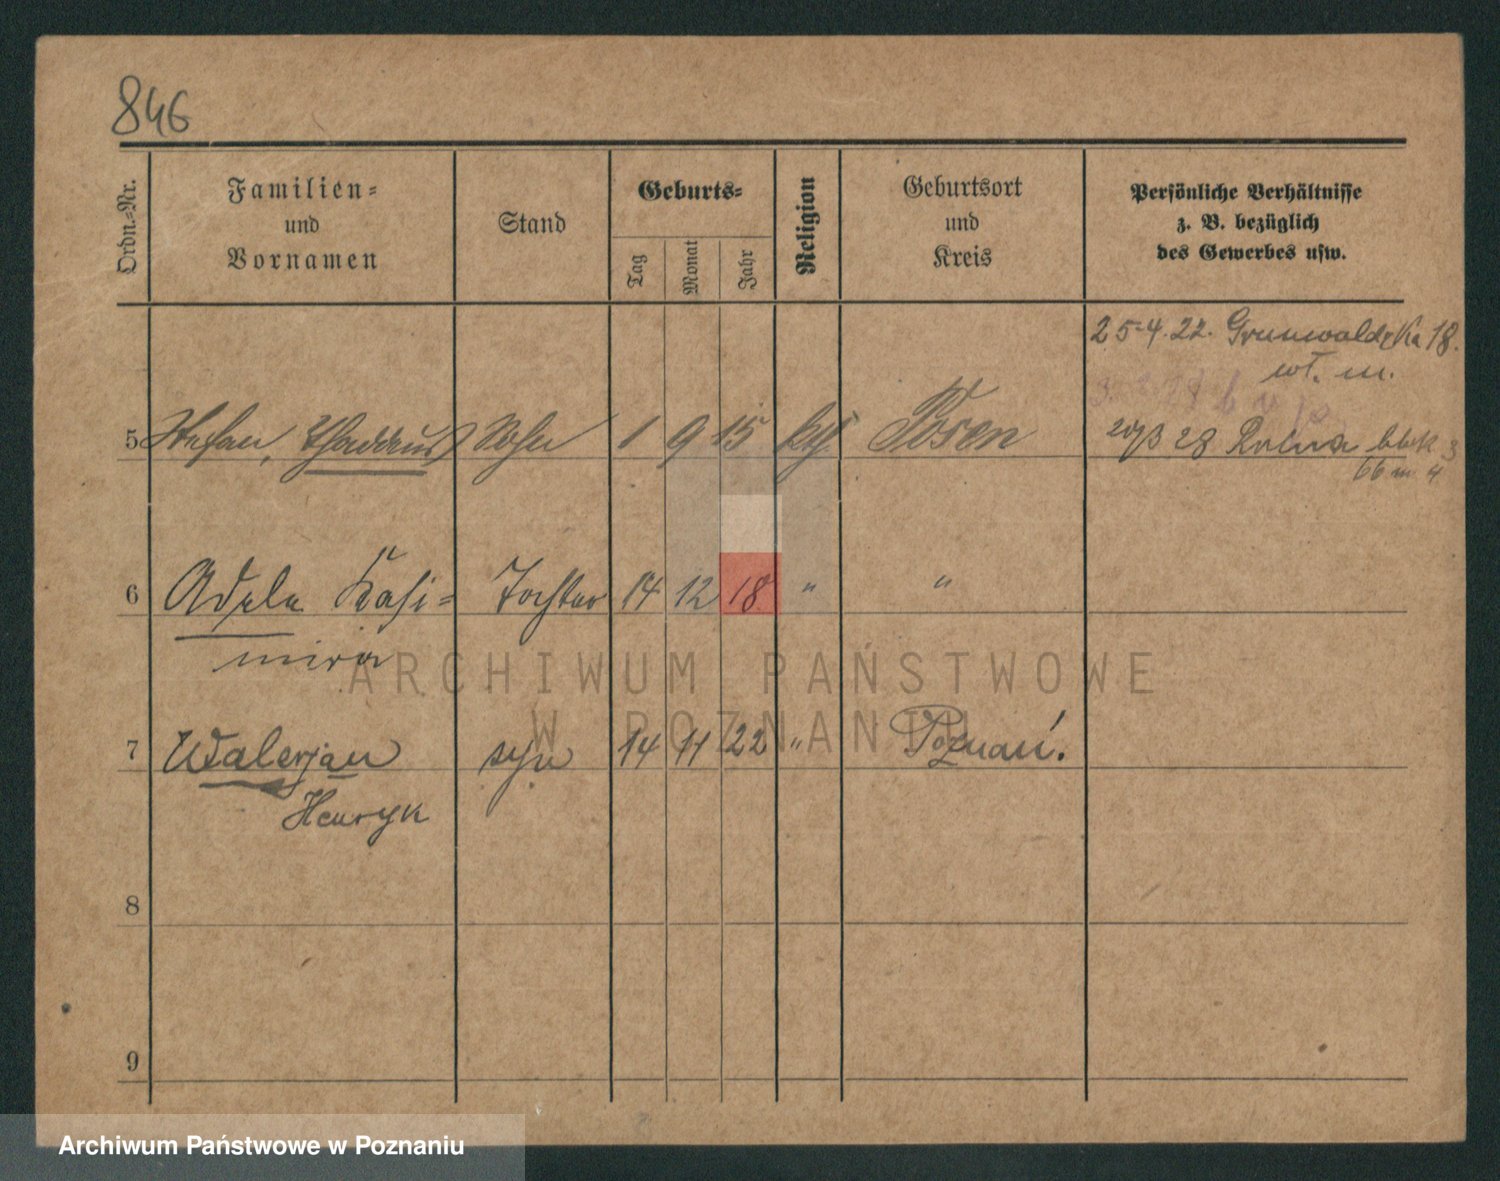 846
Ordn.-Nr.
Familien-
und
Vornamen
Stand
Geburts-
Tag
Monat
Jahr
Religion
Geburtsort
und
Kreis
Persönliche Verhältnisse
z. B. bezüglich
des Gewerbes usw.
25-4.22. Grunwaldzka 18.
wł. m.
5 Stefan, Thaddäus Sohn 1 9 15 Posen
28 Rolna
66 m 4
6 Adela Kasi= Tochter 14 12 18 " "
mira
ARCHIWUM PAŃSTWOWE
W POZNANIU
7 Walerjan syn 14 11 22 " Poznań.
Henryk
8
9
Archiwum Państwowe w Poznaniu